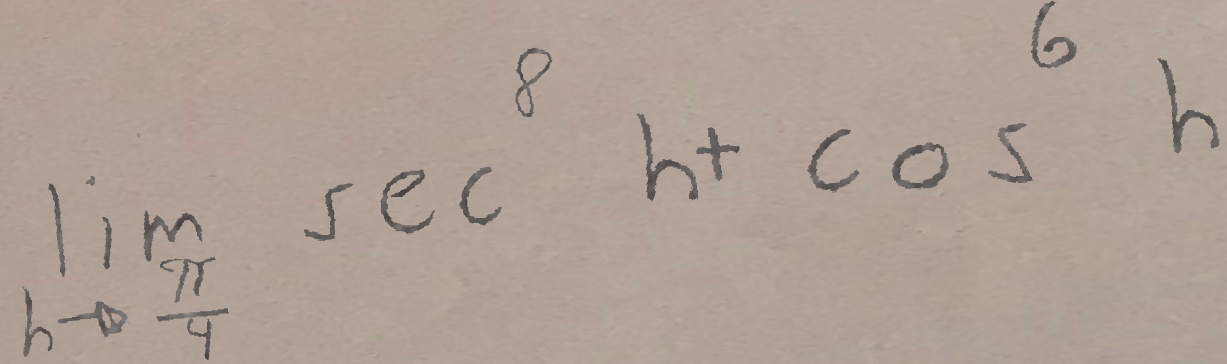 \lim_{h \to \frac{\pi}{4}} \sec^{8} h + \cos^{6} h